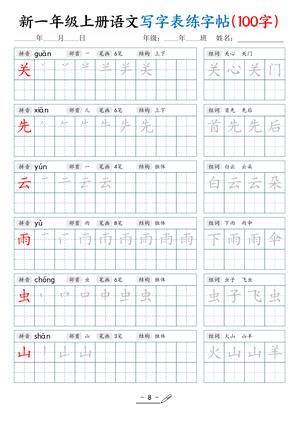 新一年级上册语文写字表练字帖(100字)
年 月 日 年级: 年 班 姓名:
拼音 guān 部首 丷 笔画 6笔 结构 上下 组词 关心 关门
关 关心关门
拼音 xiān 部首 儿 笔画 6笔 结构 上下 组词 首先 先后
先 首先先后
拼音 yún 部首 二 笔画 4笔 结构 独体 组词 白云 云朵
云 白云云朵
拼音 yǔ 部首 雨 笔画 8笔 结构 独体 组词 下雨 雨伞
雨 下雨雨伞
拼音 chóng 部首 虫 笔画 6笔 结构 独体 组词 虫子 飞虫
虫 虫子飞虫
拼音 shān 部首 山 笔画 3笔 结构 独体 组词 火山 山羊
山 火山山羊
- 8 -